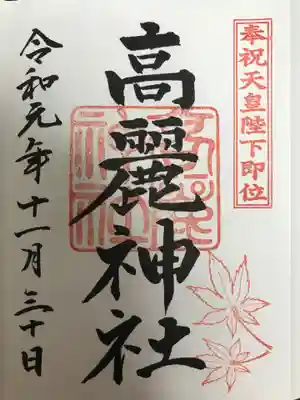 奉祝天皇陛下即位
高麗神社
令和元年十一月三十日